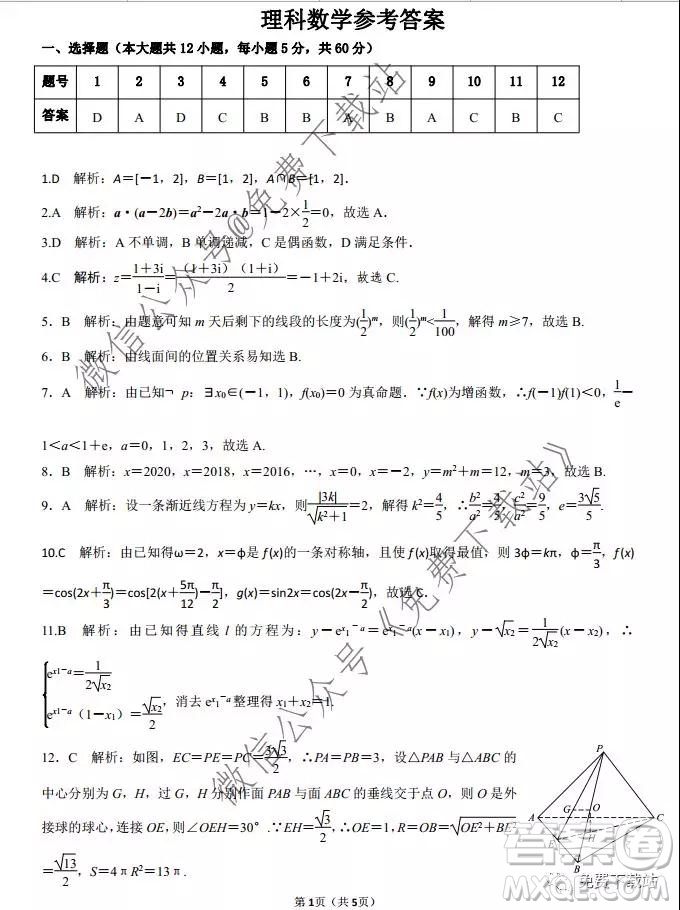 理科数学参考答案
一、选择题（本大题共 12 小题，每小题 5 分，共 60 分）
题号 1 2 3 4 5 6 7 8 9 10 11 12
答案 D A D C B B A B A C B C
1.D 解析：A＝[－1，2]，B＝[1，2]，A∩B＝[1，2]．
2.A 解析：a·(a－2b)＝a²－2a·b＝1－2×1/2＝0，故选 A．
3.D 解析：A 不单调，B 单调递减，C 是偶函数，D 满足条件．
4.C 解析：z＝(1＋3i)/(1－i)＝(1＋3i)(1＋i)/2＝－1＋2i，故选 C.
5．B 解析：由题意可知 m 天后剩下的线段的长度为(1/2)^m，则(1/2)^m<1/100，解得 m≥7，故选 B.
6．B 解析：由线面间的位置关系易知选 B.
7．A 解析：由已知¬ p：∃x₀∈(－1，1)，f(x₀)＝0 为真命题．∵f(x)为增函数，∴f(－1)f(1)＜0，1/e－
1＜a＜1＋e，a＝0，1，2，3，故选 A.
8．B 解析：x＝2020，x＝2018，x＝2016，…，x＝0，x＝－2，y＝m²＋m＝12，m＝3，故选 B.
9．A 解析：设一条渐近线方程为 y＝kx，则|3k|/√(k²＋1)＝2，解得 k²＝4/5，∴b²/a²＝4/5，c²/a²＝9/5，e＝3√5/5.
10.C 解析：由已知得ω＝2，x＝φ是 f(x)的一条对称轴，且使 f(x)取得最值，则 3φ＝kπ，φ＝π/3，f(x)
＝cos(2x＋π/3)＝cos[2(x＋5π/12)－π/2]，g(x)＝sin2x＝cos(2x－π/2)，故选 C.
11.B 解析：由已知得直线 l 的方程为：y－e^(x₁－a)＝e^(x₁－a)(x－x₁)，y－√x₂＝1/(2√x₂)(x－x₂)，∴
{e^(x1－a)＝1/(2√x₂)
e^(x1－a)（1－x₁）＝√x₂/2，消去 e^(x₁－a)整理得 x₁＋x₂＝1.
12．C 解析：如图，EC＝PE＝PC＝3√3/2，∴PA＝PB＝3，设△PAB 与△ABC 的
中心分别为 G，H，过 G，H 分别作面 PAB 与面 ABC 的垂线交于点 O，则 O 是外
接球的球心，连接 OE，则∠OEH＝30°.∵EH＝√3/2，∴OE＝1，R＝OB＝√(OE²＋BE²)
＝√13/2，S＝4πR²＝13π.
P
G
O
A
H
C
E
B
第 1页（共 5页）
微信公众号@免费下载站
微信公众号《免费下载站》
答案圈
免费下载站